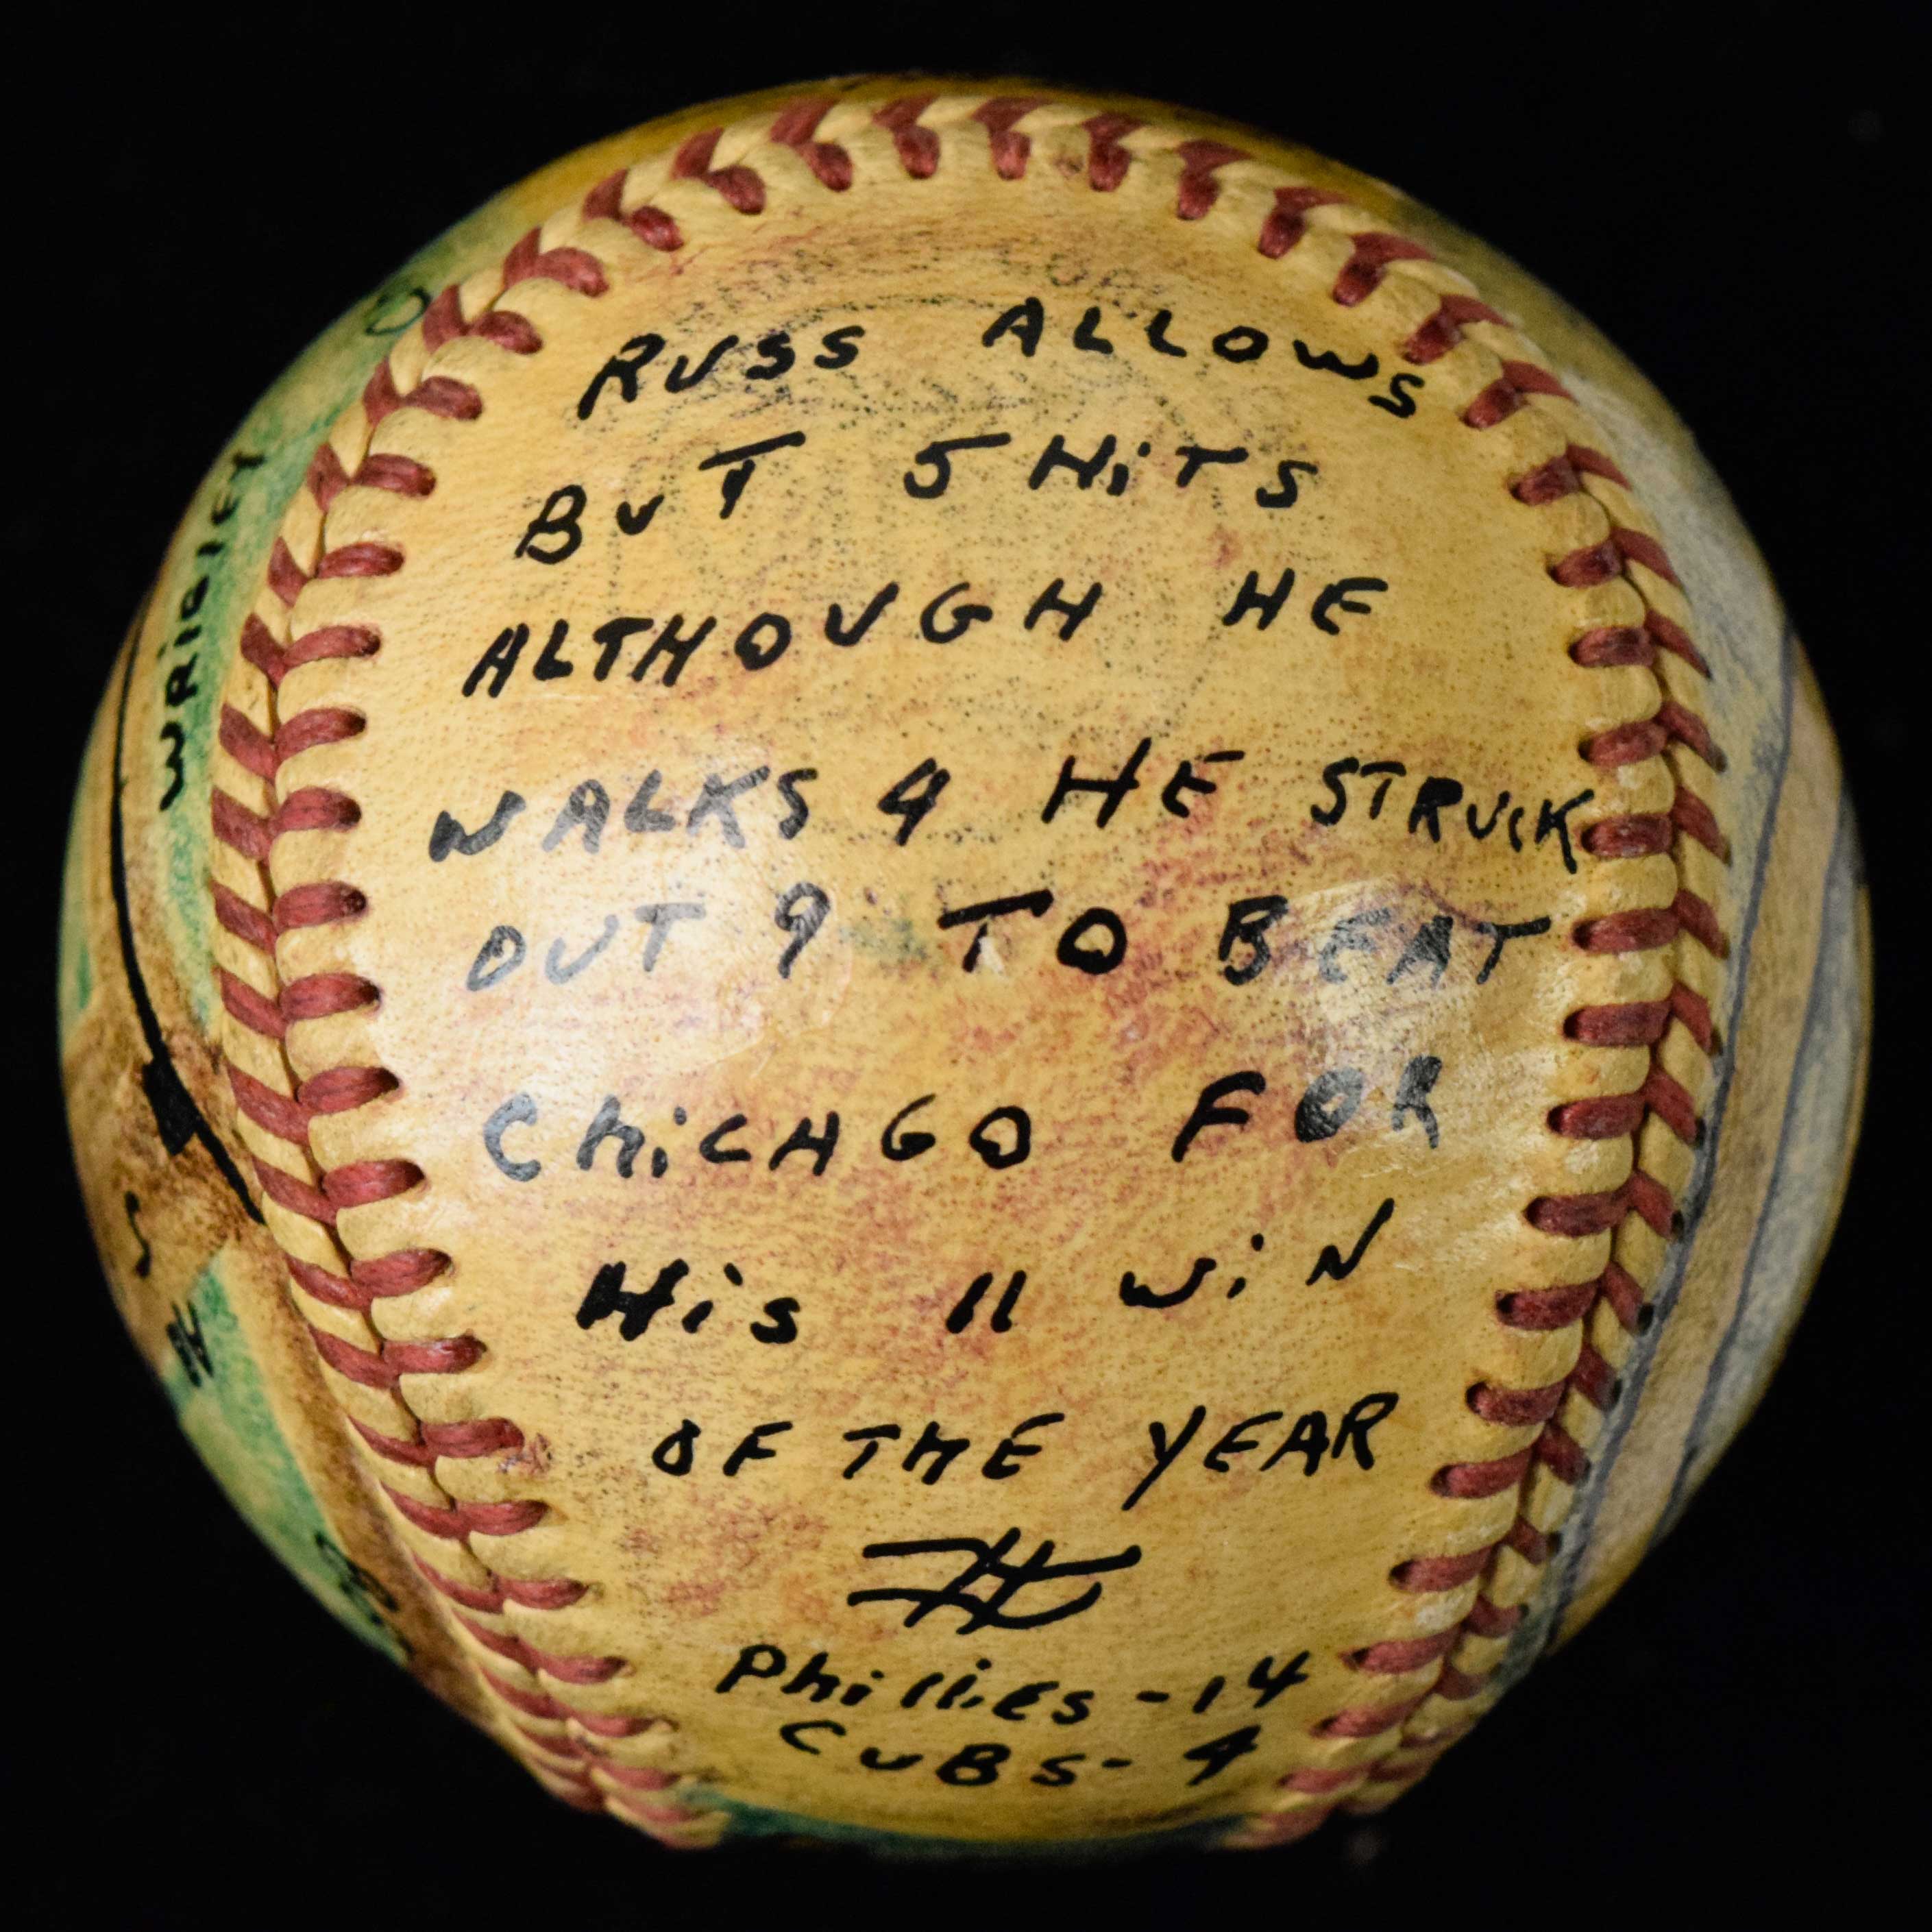 RUSS ALLOWS
BUT 5 HiTS
ALTHOUGH HE
WALKS 4 HE STRUCK
OUT 9 TO BEAT
ChiCAGO FOR
His 11 WiN
OF THE YEAR
Phillies - 14
CUBS - 4